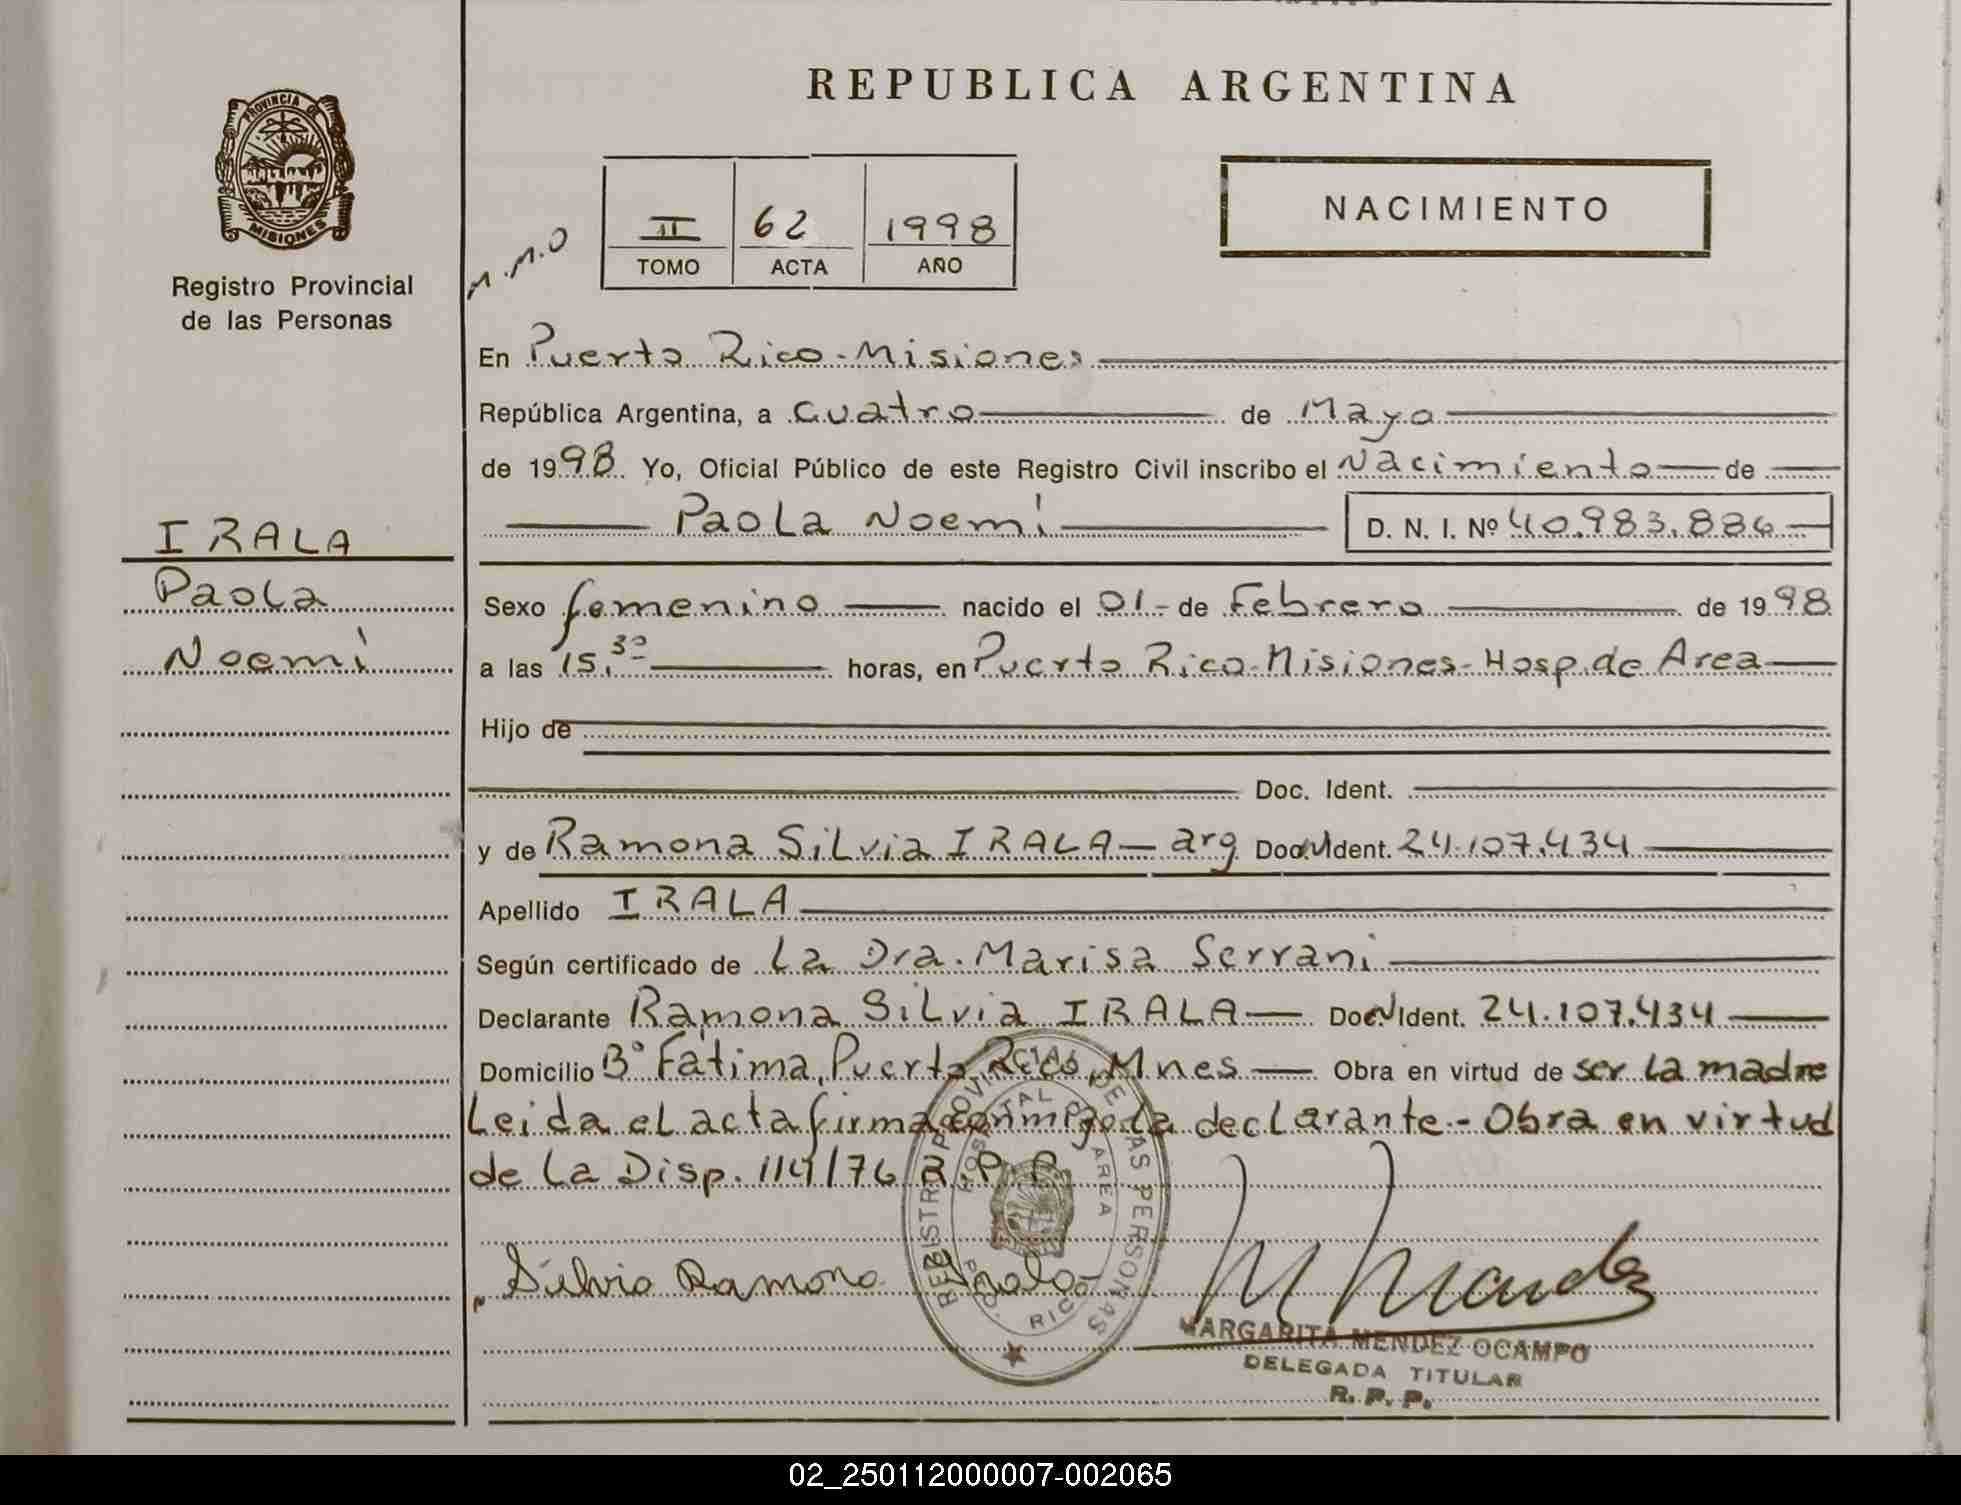 REPUBLICA ARGENTINA
PROVINCIA DE
MISIONES
Registro Provincial
de las Personas
II 62 1998
TOMO ACTA AÑO
NACIMIENTO
En Puerto Rico-Misiones
República Argentina, a cuatro de Mayo
de 1998 Yo, Oficial Público de este Registro Civil inscribo el Nacimiento de
IRALA
Paola
Noemí
Paola Noemí D. N. I. Nº 40.983.886
Sexo femenino nacido el 01- de Febrero de 1998
a las 15.30 horas, en Puerto Rico-Misiones-Hosp.de Area
Hijo de
Doc. Ident.
y de Ramona Silvia IRALA - arg Doc. Ident. 24.107.434
Apellido IRALA
Según certificado de La Dra. Marisa Serrani
Declarante Ramona Silvia IRALA Doc. Ident. 24.107.434
Domicilio Bº Fátima, Puerto Rico, Mnes Obra en virtud de ser la madre
Leida el acta firma conmigo la declarante - Obra en virtud
de la Disp. 114/76 R.P.P.
REGISTRO PROVINCIAL DE LAS PERSONAS
HOSPITAL DE AREA
RICO
Silvia Ramona Irala
M Mendez
MARGARITA MENDEZ OCAMPO
DELEGADA TITULAR
R. P. P.
02_250112000007-002065